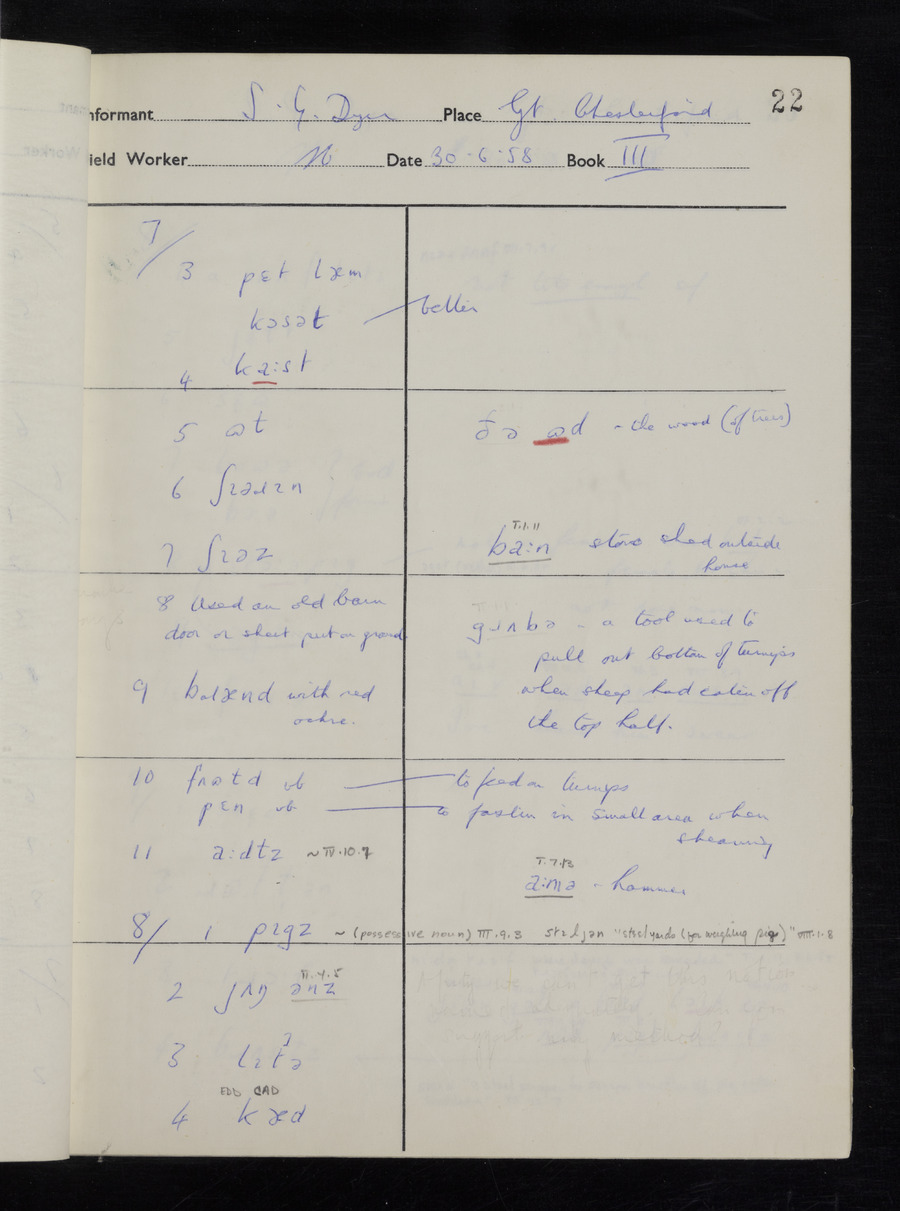 22
Informant S. G. Dyer Place Gt. Chesterford
Field Worker Date 30-6-58 Book III
7/
3 pɛt læm
kɒsət better
4 ka:st
5 ɷt ðə ɷd - the wood (of trees)
6 ʃɪədɪn
T.1.11
7 ʃɪəz ba:n store shed outside
house
8 Used an old barn
door or sheet put on ground
gɹʌbə - a tool used to
pull out bottom of turnips
9 bɹænd with red when sheep had eaten off
ochre. the top half.
10 vb to feed on turnips
pɛn vb to fasten in small area when
shearing
11 a:dtz ~ IV.10.7
T.7.13
a:mə - hammer
8/ 1 pɪgz ~ (possessive noun) III.9.3 stɪljən "steelyards (for weighing pig)" VIII.1.8
II.4.5
2 jʌŋ ənz
3 lɪtʔə
EDD CAD
4 kæd